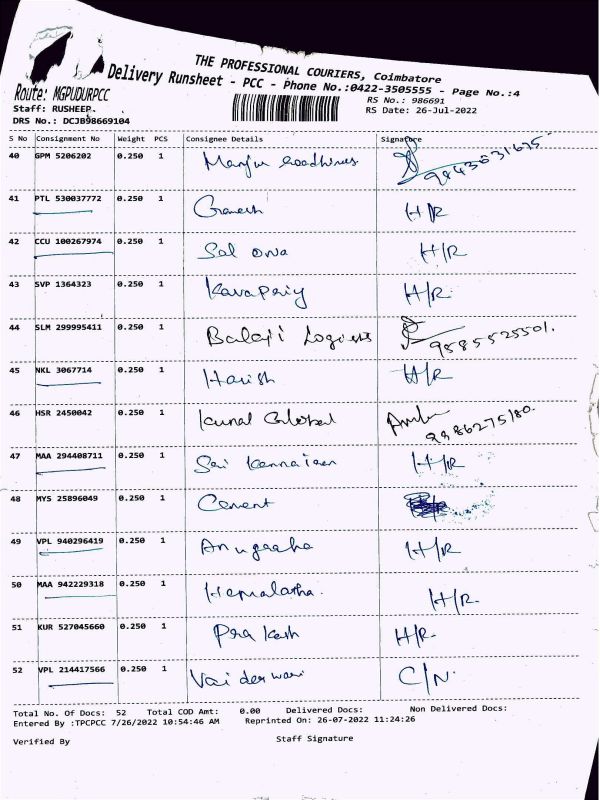 THE PROFESSIONAL COURIERS, Coimbatore
Delivery Runsheet - PCC - Phone No.:0422-3505555 - Page No.:4
Route: MGPUDURPCC
Staff: RUSHEEP.
RS No.: 986691
DRS No.: DCJB98669104
RS Date: 26-Jul-2022
S No Consignment No Weight PCS Consignee Details Signature
40 GPM 5206202 0.250 1 Manju
41 PTL 530037772 0.250 1 Ganesh H/R
42 CCU 100267974 0.250 1 Sal H/R
43 SVP 1364323 0.250 1 Kavapriy H/R
44 SLM 299995411 0.250 1 Balaji 9585525501.
45 NKL 3067714 0.250 1 Harish H/R
46 HSR 2450042 0.250 1 Kunal Global
47 MAA 294408711 0.250 1 Sri Kannaian H/R
48 MYS 25896049 0.250 1 Cement
49 VPL 940296419 0.250 1 Anugraha H/R
50 MAA 942229318 0.250 1 Hemalatha. H/R
51 KUR 527045660 0.250 1 Prakash H/R.
52 VPL 214417566 0.250 1 C/N.
Total No. Of Docs: 52 Total COD Amt: 0.00 Delivered Docs: Non Delivered Docs:
Entered By :TPCPCC 7/26/2022 10:54:46 AM Reprinted On: 26-07-2022 11:24:26
Verified By Staff Signature